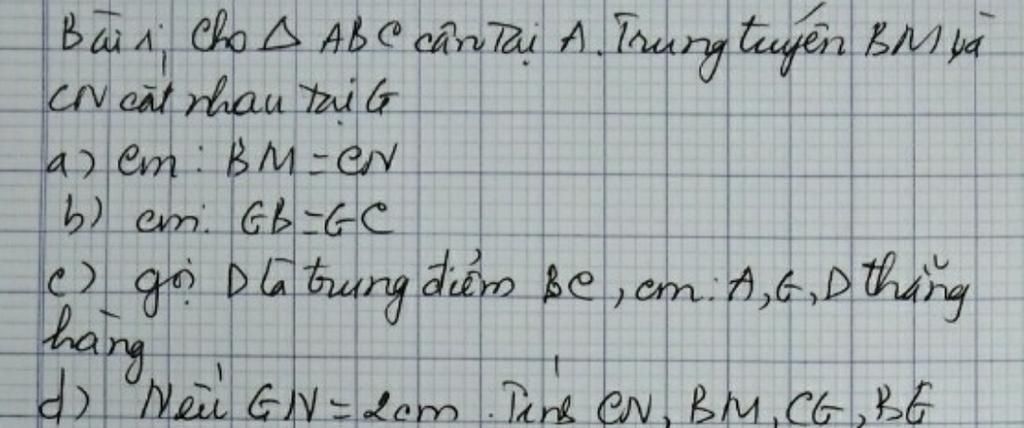 Bài 1; Cho Δ ABC cân tại A. Trung tuyến BM và
CN cắt nhau tại G
a) cm: BM = CN
b) cm: GB = GC
c) gọi D là trung điểm BC, cm: A, G, D thẳng
hàng
d) Nếu GN = 2cm. Tính CN, BM, CG, BG